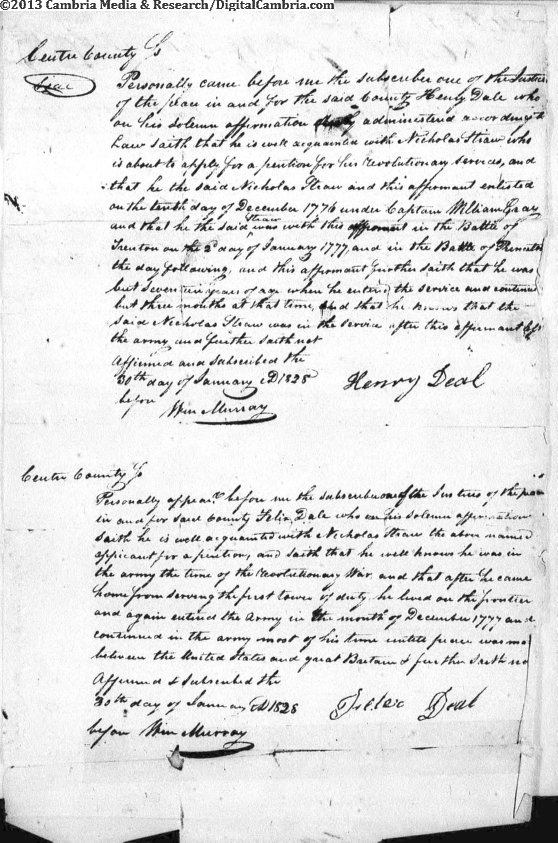 ©2013 Cambria Media & Research/DigitalCambria.com
Centre County Ss
Personally came before me the subscriber one of the Justices
of the peace in and for the said County Henry Dale who
on his solemn affirmation administered according to
Law saith that he is well acquainted with Nicholas Straw who
is about to apply for a pention for his Revolutionary services, and
that he the said Nicholas Straw and this affirmant enlisted
on the tenth day of December 1776 under Captain William Gray
and that he the said Straw was with this affirmant in the Battle of
Trenton on the 2d day of January 1777, and in the Battle of Princeton
the day following, and this affirmant further saith that he was
but seventeen years of age when he entered the service and continued
but three months at that time, and that he knows that the
said Nicholas Straw was in the service after this affirmant left
the army and further saith not
Affirmed and subscribed the
30th day of January AD 1828 Henry Deal
before Wm Murray
Centre County Ss
Personally appeard before me the subscriber one of the Justices of the peace
in and for said County Felix Dale who on his solemn affirmation
saith he is well acquanted with Nicholas Straw the above named
appicant for a pention, and saith that he well knows he was in
the army the time of the Revolutionary War, and that after he came
home from serving the first tower of duty he lived on the frontier
and again entered the Army in the month of December 1777 and
continued in the army most of his time untill peace was ma
between the United States and great Britain & further saith no
Affirmed & Subscribed the
30th day of January AD 1828 Deal
before Wm Murray